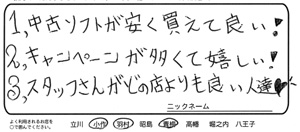 1,中古ソフトが安く買えて良い!
2,キャンペーンが多くて嬉しい!
3,スタッフさんがどの店よりも良い人達♥
ニックネーム
よく利用されるお店を
○で囲んでください。 立川 小作 羽村 昭島 青梅 高幡 堀之内 八王子